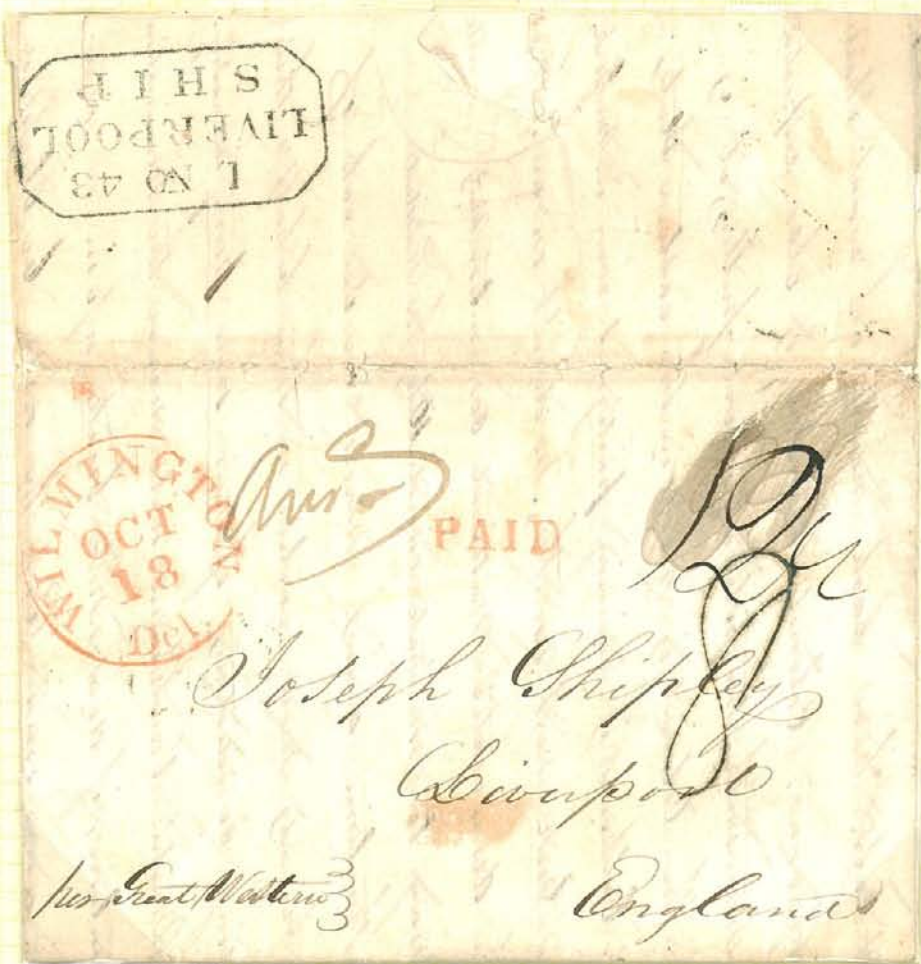 1 NO 43
LIVERPOOL
SHIP
WILMINGTON
OCT
18
Del.
PAID
12½
8
Joseph Shipley
Liverpool
England
per Great Western